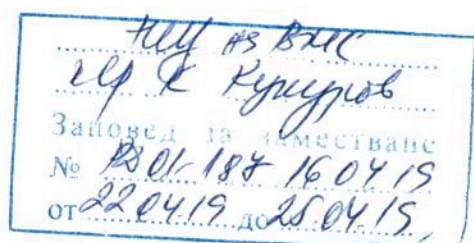 НЦ на ВМС
Кукуров
Заповед за заместване
№ РД 01-187 16 04 19
от 22 04 19 до 25 04 19